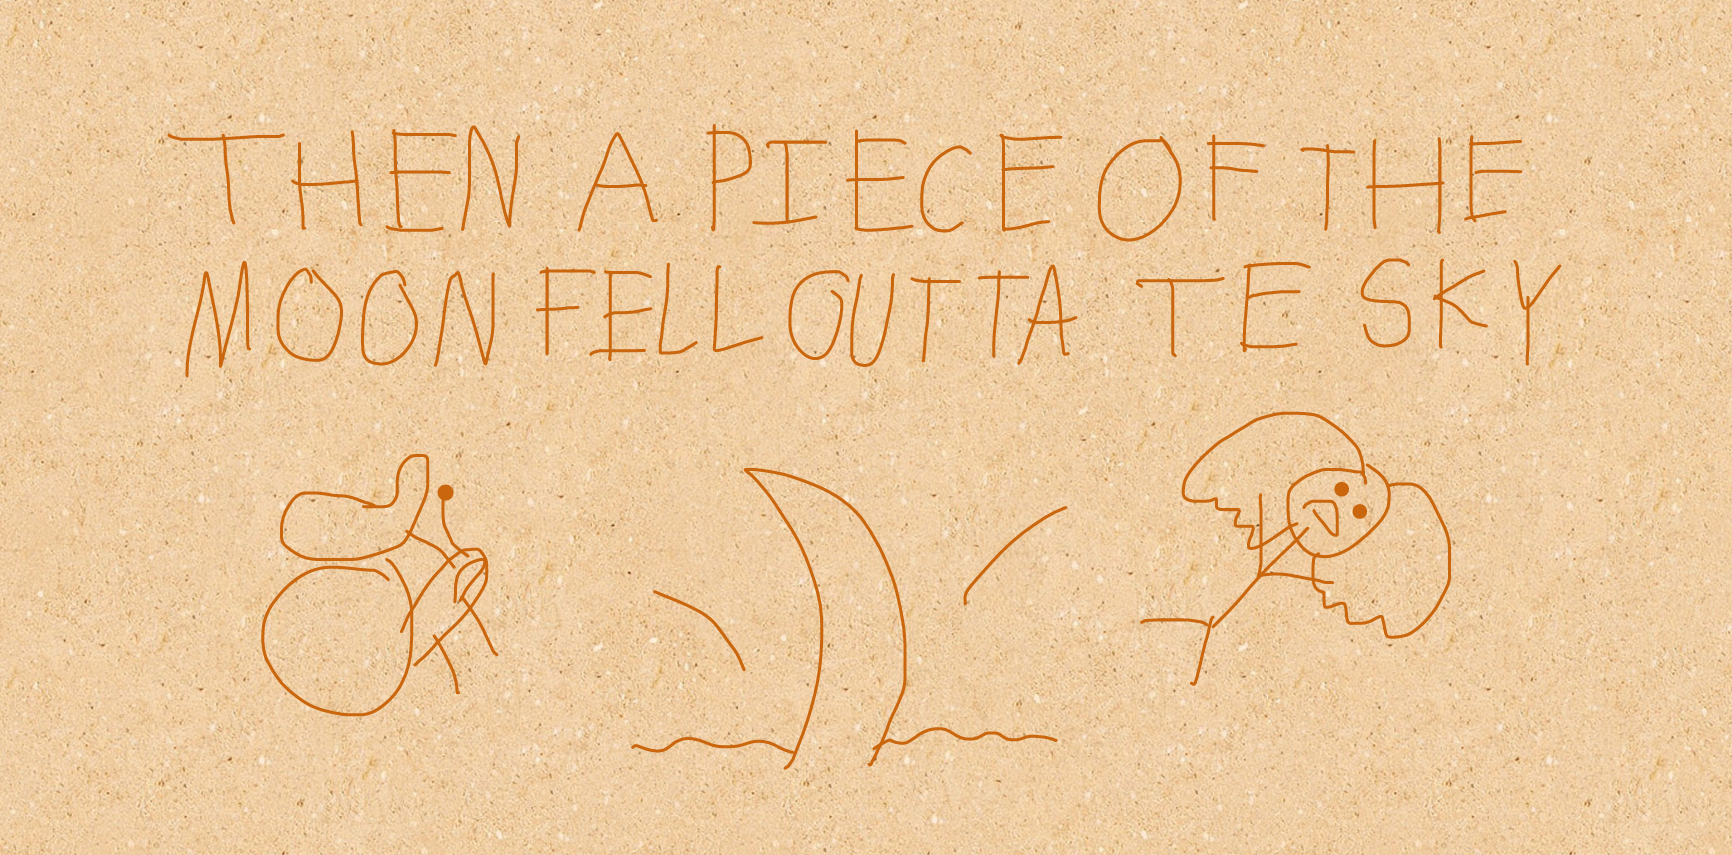 THEN A PIECE OF THE
MOON FELL OUTTA TE SKY